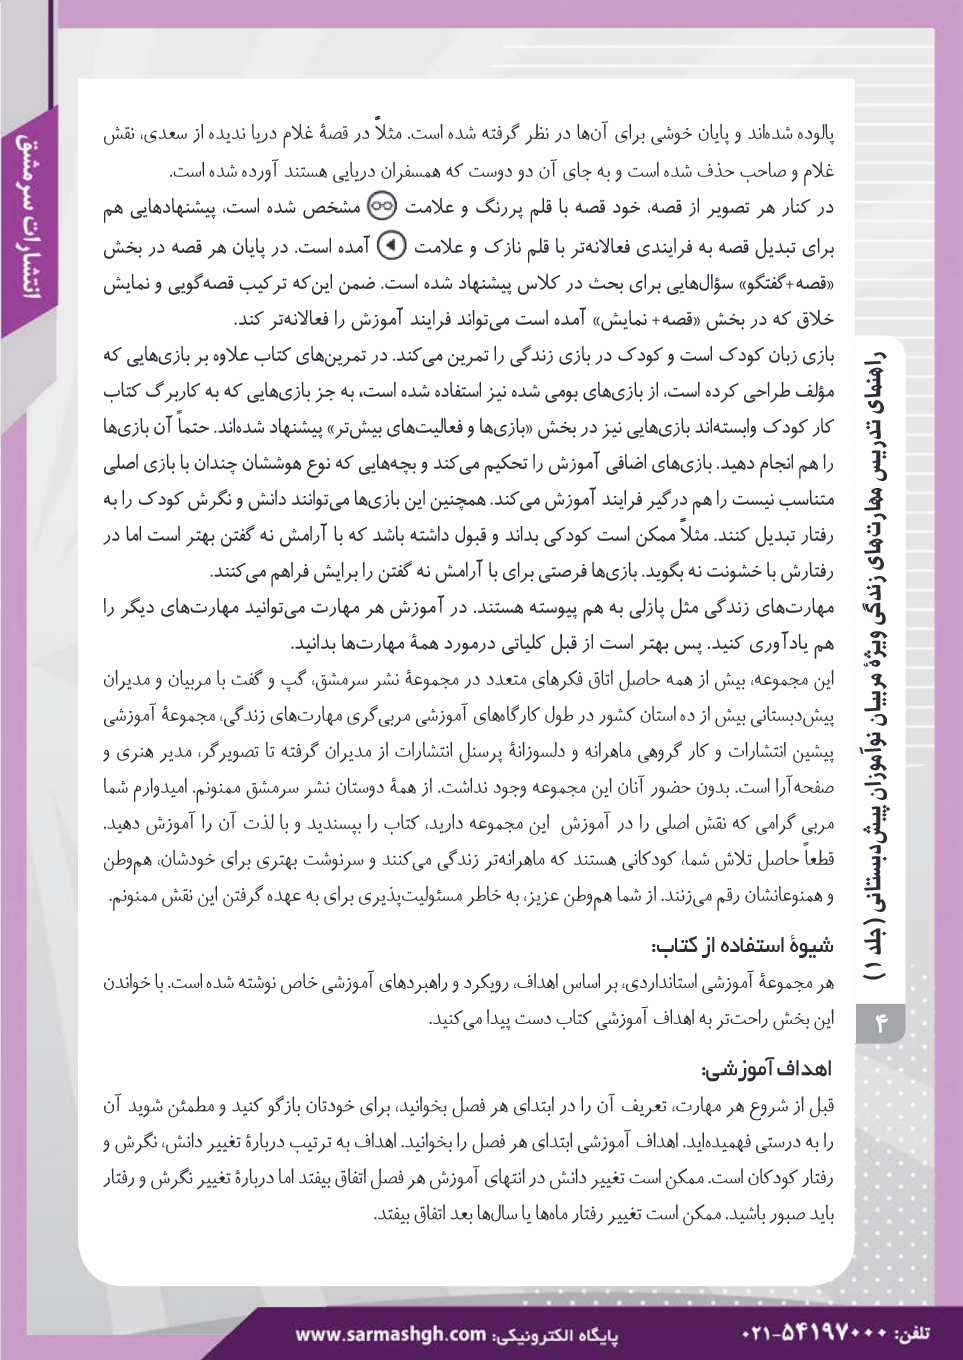 انتشارات سرمشق
پالوده شده‌اند و پایان خوشی برای آن‌ها در نظر گرفته شده است. مثلاً در قصهٔ غلام دریا ندیده از سعدی، نقش
غلام و صاحب حذف شده است و به جای آن دو دوست که همسفران دریایی هستند آورده شده است.
در کنار هر تصویر از قصه، خود قصه با قلم پررنگ و علامت مشخص شده است، پیشنهادهایی هم
برای تبدیل قصه به فرایندی فعالانه‌تر با قلم نازک و علامت آمده است. در پایان هر قصه در بخش
«قصه+گفتگو» سؤال‌هایی برای بحث در کلاس پیشنهاد شده است. ضمن این‌که ترکیب قصه‌گویی و نمایش
خلاق که در بخش «قصه+ نمایش» آمده است می‌تواند فرایند آموزش را فعالانه‌تر کند.
بازی زبان کودک است و کودک در بازی زندگی را تمرین می‌کند. در تمرین‌های کتاب علاوه بر بازی‌هایی که
مؤلف طراحی کرده است، از بازی‌های بومی شده نیز استفاده شده است، به جز بازی‌هایی که به کاربرگ کتاب
کار کودک وابسته‌اند بازی‌هایی نیز در بخش «بازی‌ها و فعالیت‌های بیش‌تر» پیشنهاد شده‌اند. حتماً آن بازی‌ها
را هم انجام دهید. بازی‌های اضافی آموزش را تحکیم می‌کند و بچه‌هایی که نوع هوششان چندان با بازی اصلی
متناسب نیست را هم درگیر فرایند آموزش می‌کند. همچنین این بازی‌ها می‌توانند دانش و نگرش کودک را به
رفتار تبدیل کنند. مثلاً ممکن است کودکی بداند و قبول داشته باشد که با آرامش نه گفتن بهتر است اما در
رفتارش با خشونت نه بگوید. بازی‌ها فرصتی برای با آرامش نه گفتن را برایش فراهم می‌کنند.
مهارت‌های زندگی مثل پازلی به هم پیوسته هستند. در آموزش هر مهارت می‌توانید مهارت‌های دیگر را
هم یادآوری کنید. پس بهتر است از قبل کلیاتی درمورد همهٔ مهارت‌ها بدانید.
این مجموعه، بیش از همه حاصل اتاق فکرهای متعدد در مجموعهٔ نشر سرمشق، گپ و گفت با مربیان و مدیران
پیش‌دبستانی بیش از ده استان کشور در طول کارگاه‌های آموزشی مربی‌گری مهارت‌های زندگی، مجموعهٔ آموزشی
پیشین انتشارات و کار گروهی ماهرانه و دلسوزانهٔ پرسنل انتشارات از مدیران گرفته تا تصویرگر، مدیر هنری و
صفحه‌آرا است. بدون حضور آنان این مجموعه وجود نداشت. از همهٔ دوستان نشر سرمشق ممنونم. امیدوارم شما
مربی گرامی که نقش اصلی را در آموزش این مجموعه دارید، کتاب را بپسندید و با لذت آن را آموزش دهید.
قطعاً حاصل تلاش شما، کودکانی هستند که ماهرانه‌تر زندگی می‌کنند و سرنوشت بهتری برای خودشان، هم‌وطن
و همنوعانشان رقم می‌زنند. از شما هم‌وطن عزیز، به خاطر مسئولیت‌پذیری برای به عهده گرفتن این نقش ممنونم.
شیوهٔ استفاده از کتاب:
هر مجموعهٔ آموزشی استانداردی، بر اساس اهداف، رویکرد و راهبردهای آموزشی خاص نوشته شده است. با خواندن
این بخش راحت‌تر به اهداف آموزشی کتاب دست پیدا می‌کنید.
اهداف آموزشی:
قبل از شروع هر مهارت، تعریف آن را در ابتدای هر فصل بخوانید، برای خودتان بازگو کنید و مطمئن شوید آن
را به درستی فهمیده‌اید. اهداف آموزشی ابتدای هر فصل را بخوانید. اهداف به ترتیب دربارهٔ تغییر دانش، نگرش و
رفتار کودکان است. ممکن است تغییر دانش در انتهای آموزش هر فصل اتفاق بیفتد اما دربارهٔ تغییر نگرش و رفتار
باید صبور باشید. ممکن است تغییر رفتار ماه‌ها یا سال‌ها بعد اتفاق بیفتد.
راهنمای تدریس مهارت‌های زندگی ویژهٔ مربیان نوآموزان پیش‌دبستانی (جلد ۱)
۴
تلفن: ۵۴۱۹۷۰۰۰-۰۲۱
پایگاه الکترونیکی: www.sarmashgh.com